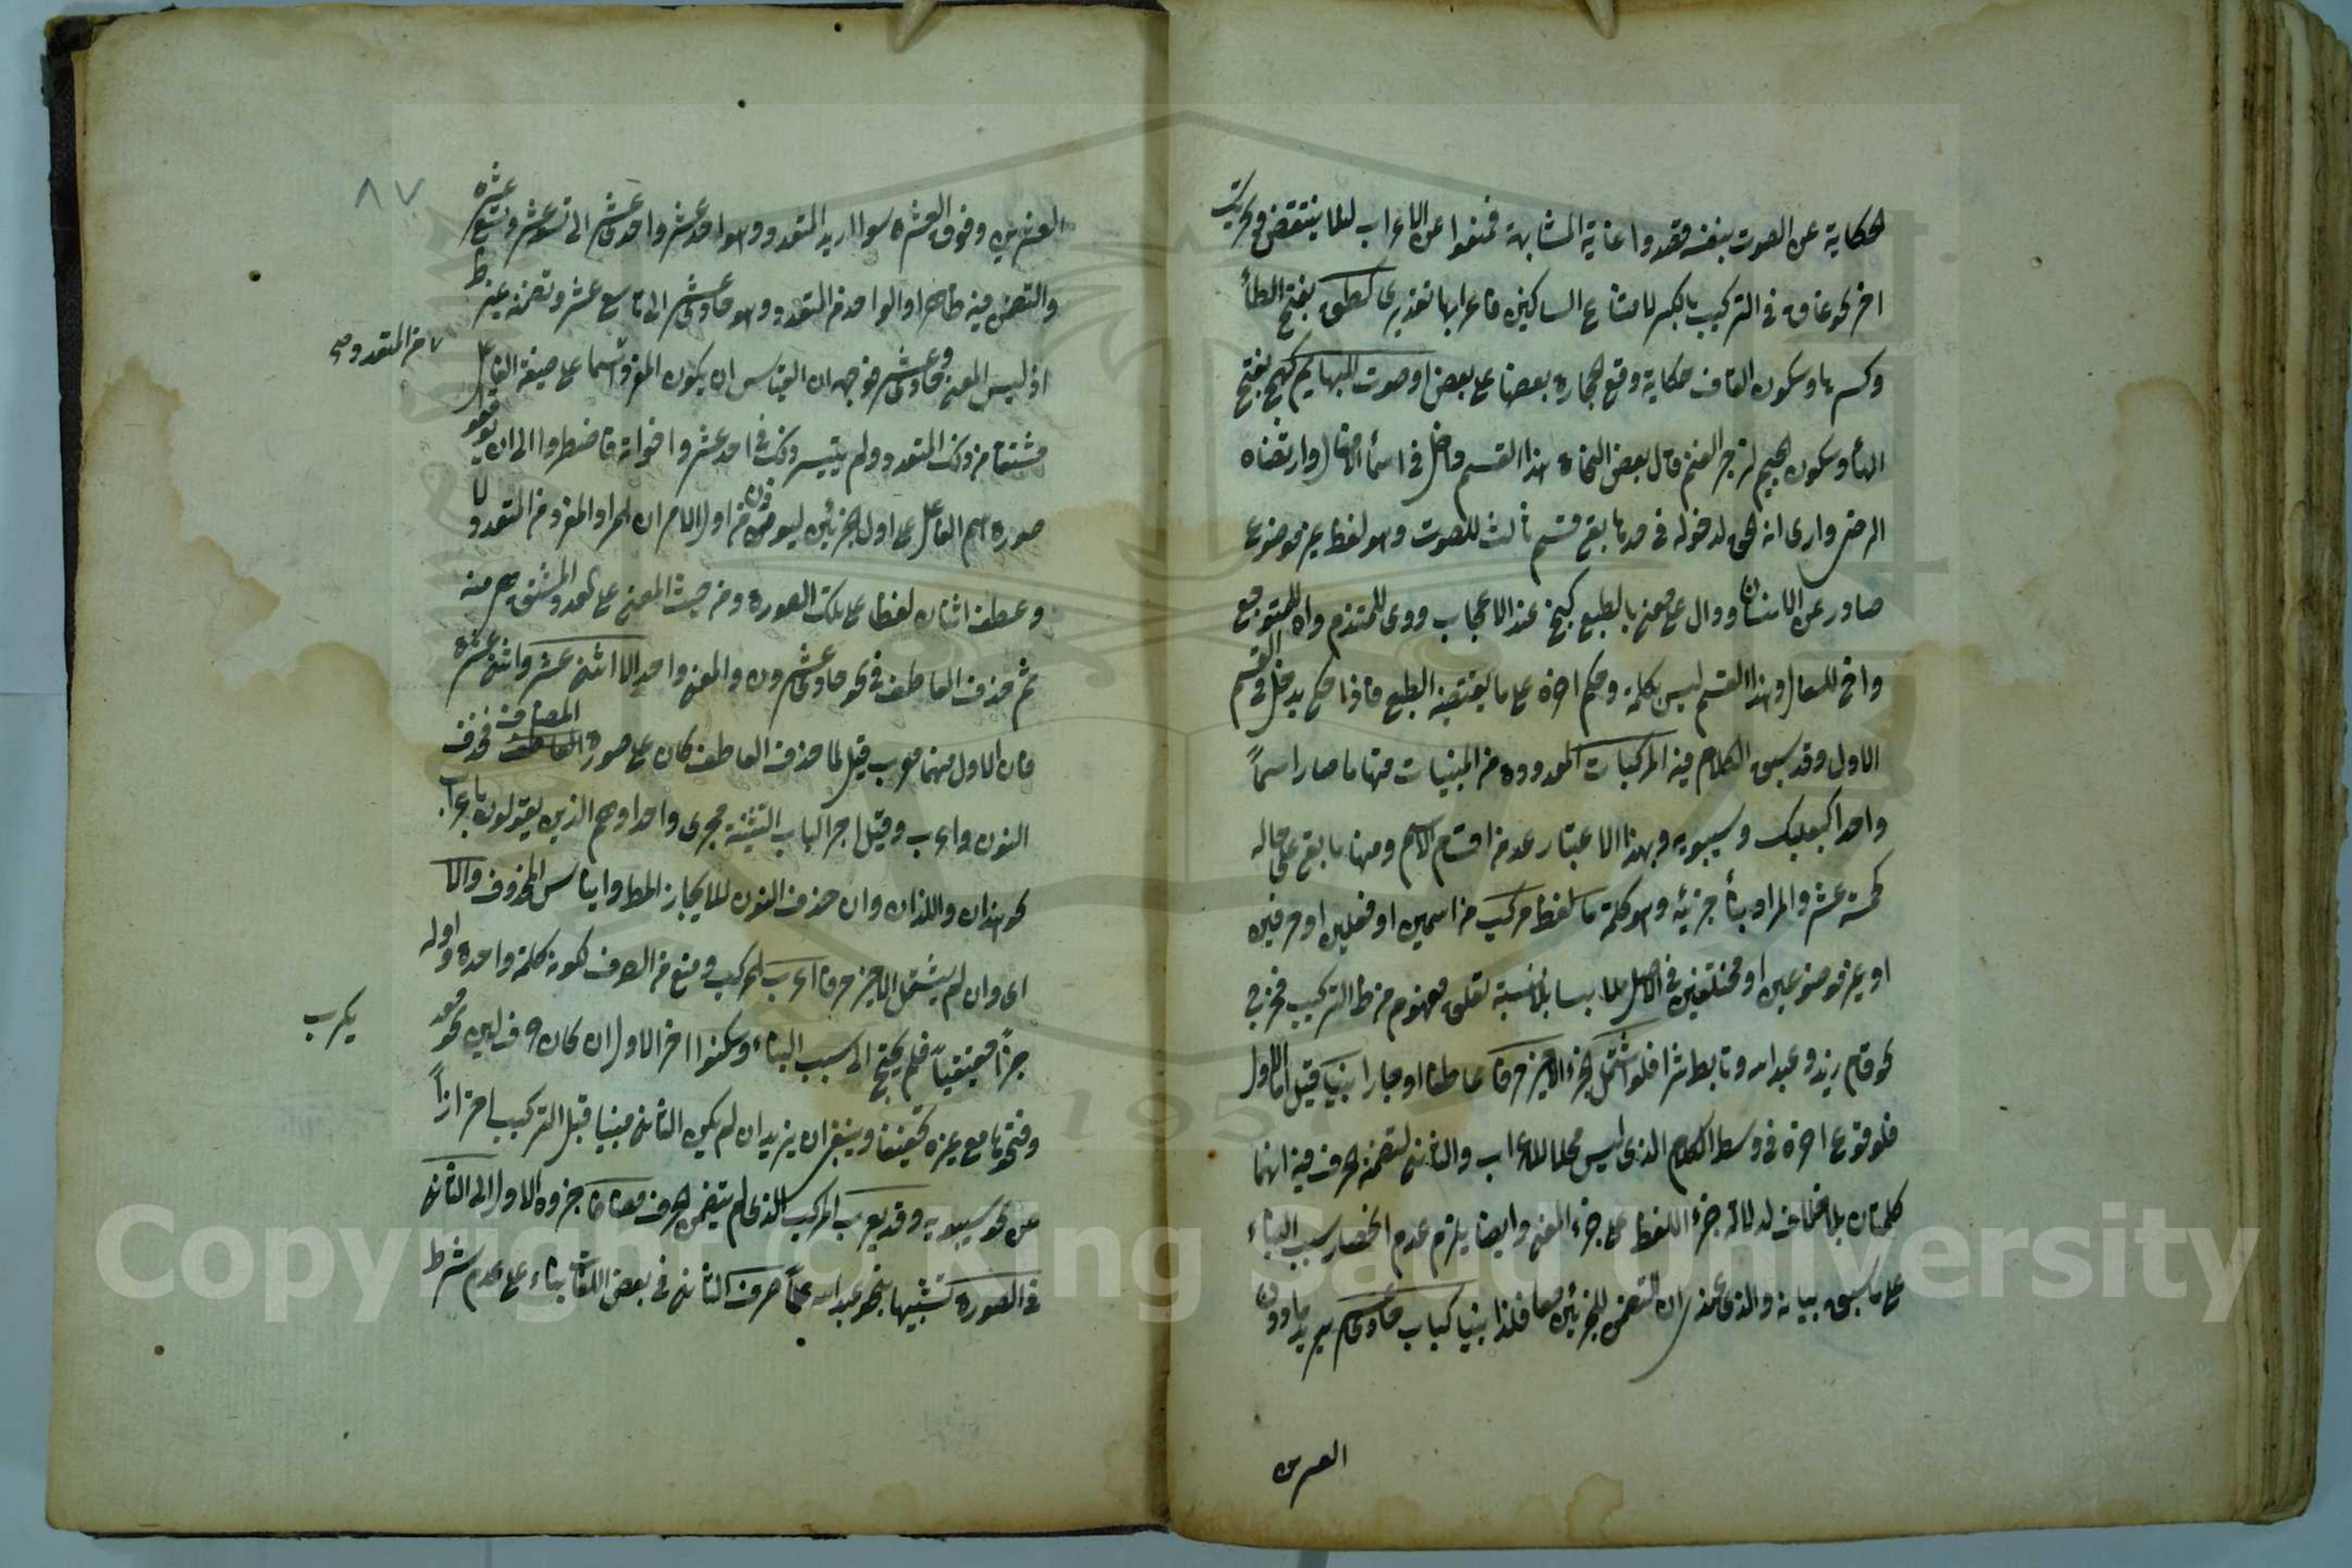 الحكاية عن الصوت بنفسه فقصدوا غاية المشابهة فمنعوا عن الاعراب لئلا ينتقض في تحريك
اخر نحو غاق في التركيب بالكسر لامتناع الساكنين فاعرابها تقديرى كطق بفتح الطاء
وكسرها وسكون القاف حكاية وقع الحجارة بعضها على بعض او صوت للبهايم كهج بفتح
الهاء وسكون الجيم لزجر الغنم قال بعض النحاة هذا القسم داخل في اسماء الافعال وارتضاه
الرضى وارى انه الحق لدخوله في حدها بقى قسم ثالث للصوت وهو لفظ غير موضوع
صادر عن الانسان ودال على معنى بالطبع كبخ عند الاعجاب ووى للمتندم واه للمتوجع
واخ للسعال وهذا القسم ليس بكلمة وحكم اخره على ما يقتضيه الطبع فاذا حكى يدخل في القسم
الاول وقد سبق الكلام فيه المركبات المعدودة من المبنيات منها ما صار اسماً
واحدا كبعلبك وسيبويه وبهذا الاعتبار عد من اقسام الاسم ومنها ما بقى على حاله
كخمسة عشر والمراد بناء جزئيه وهو كلمة ما لفظ مركب من اسمين او فعلين او حرفين
او غير موضوعين او مختلفين في الاصل بلا نسبة تعلق مفهوم من ظ التركيب فخرج
نحو قام زيد وعبد الله وتأبط شرا فلو اشتمل الجزء الاخير حرفا عاطفا او جارا بنيا قيل اما الاول
فلوقوع اخره في وسط الكلام الذى ليس محلا للاعراب والثانى لتضمنه الحرف فيه انهما
كلمتان بلا خلاف لدلالة جزء اللفظ على جزء المعنى وايضا يلزم عدم انحصار سبب البناء
على ما سبق بيانه والذى عندى ان التضمن للجزئين معا فلذا بنيا كباب حادى عشر يريد ما دون
العشرين
٨٧
العشرين وفوق العشرة سوا اريد المتعدد وهو احد عشر واحدى عشرة الى تسعة عشر وتسع عشرة
والتضمن فيه ظاهر او الواحد من المتعدد وهو حادى عشر الى تاسع عشر وتضمنه غير ظ
اذ ليس المعنى حادى وعشر فوجهه ان القياس ان يكون المفرد اسما على صيغة الفاعل
من المتعدد صح
مشتقا من ذلك المتعدد ولم يتيسر ذلك في احد عشر واخواته فاضطروا الى ان يوقعوا
صورة اسم الفاعل على اول الجزئين ليوذن من اول الامر ان المراد المفرد من المتعدد لا
وعطف الثانى لفظا على تلك الصورة ومن حيث المعنى على العدد المشتق هى منه
ثم حذف العاطف في نحو حادى عشر دون والمعنى واحد الا اثنى عشر واثنتى عشرة
فان الاول منهما معرب قيل لما حذف العاطف كان على صورة المضاف فحذف
النون واعرب وقيل اجرا لباب التثنية مجرى واحدا وهم الذين يقولون باعراب
نحو هذان واللذان وان حذف النون للايجاز المط وايناس المحذوف والا
اى وان لم يشتمل الاخير حرفا اعرب المركب ومنع من الصرف لكونه كلمة واحدة واوله
جزأ حقيقيا فلم يحتج الى سبب البناء وسكنوا اخر الاول ان كان حرف لين نحو معد
يكرب
وفتحوها مع غيره تخفيفا وينبغى ان يزيد ان لم يكن الثانى مبنيا قبل التركيب احترازاً
عن نحو سيبويه وقد يعرب المركب الذى لم يتضمن الحرف مضافا جزءه الاول الى الثانى
في الصورة تشبيها بنحو عبد الله علماً صرف الثانى في بعض اللغات بناء على عدم شرط